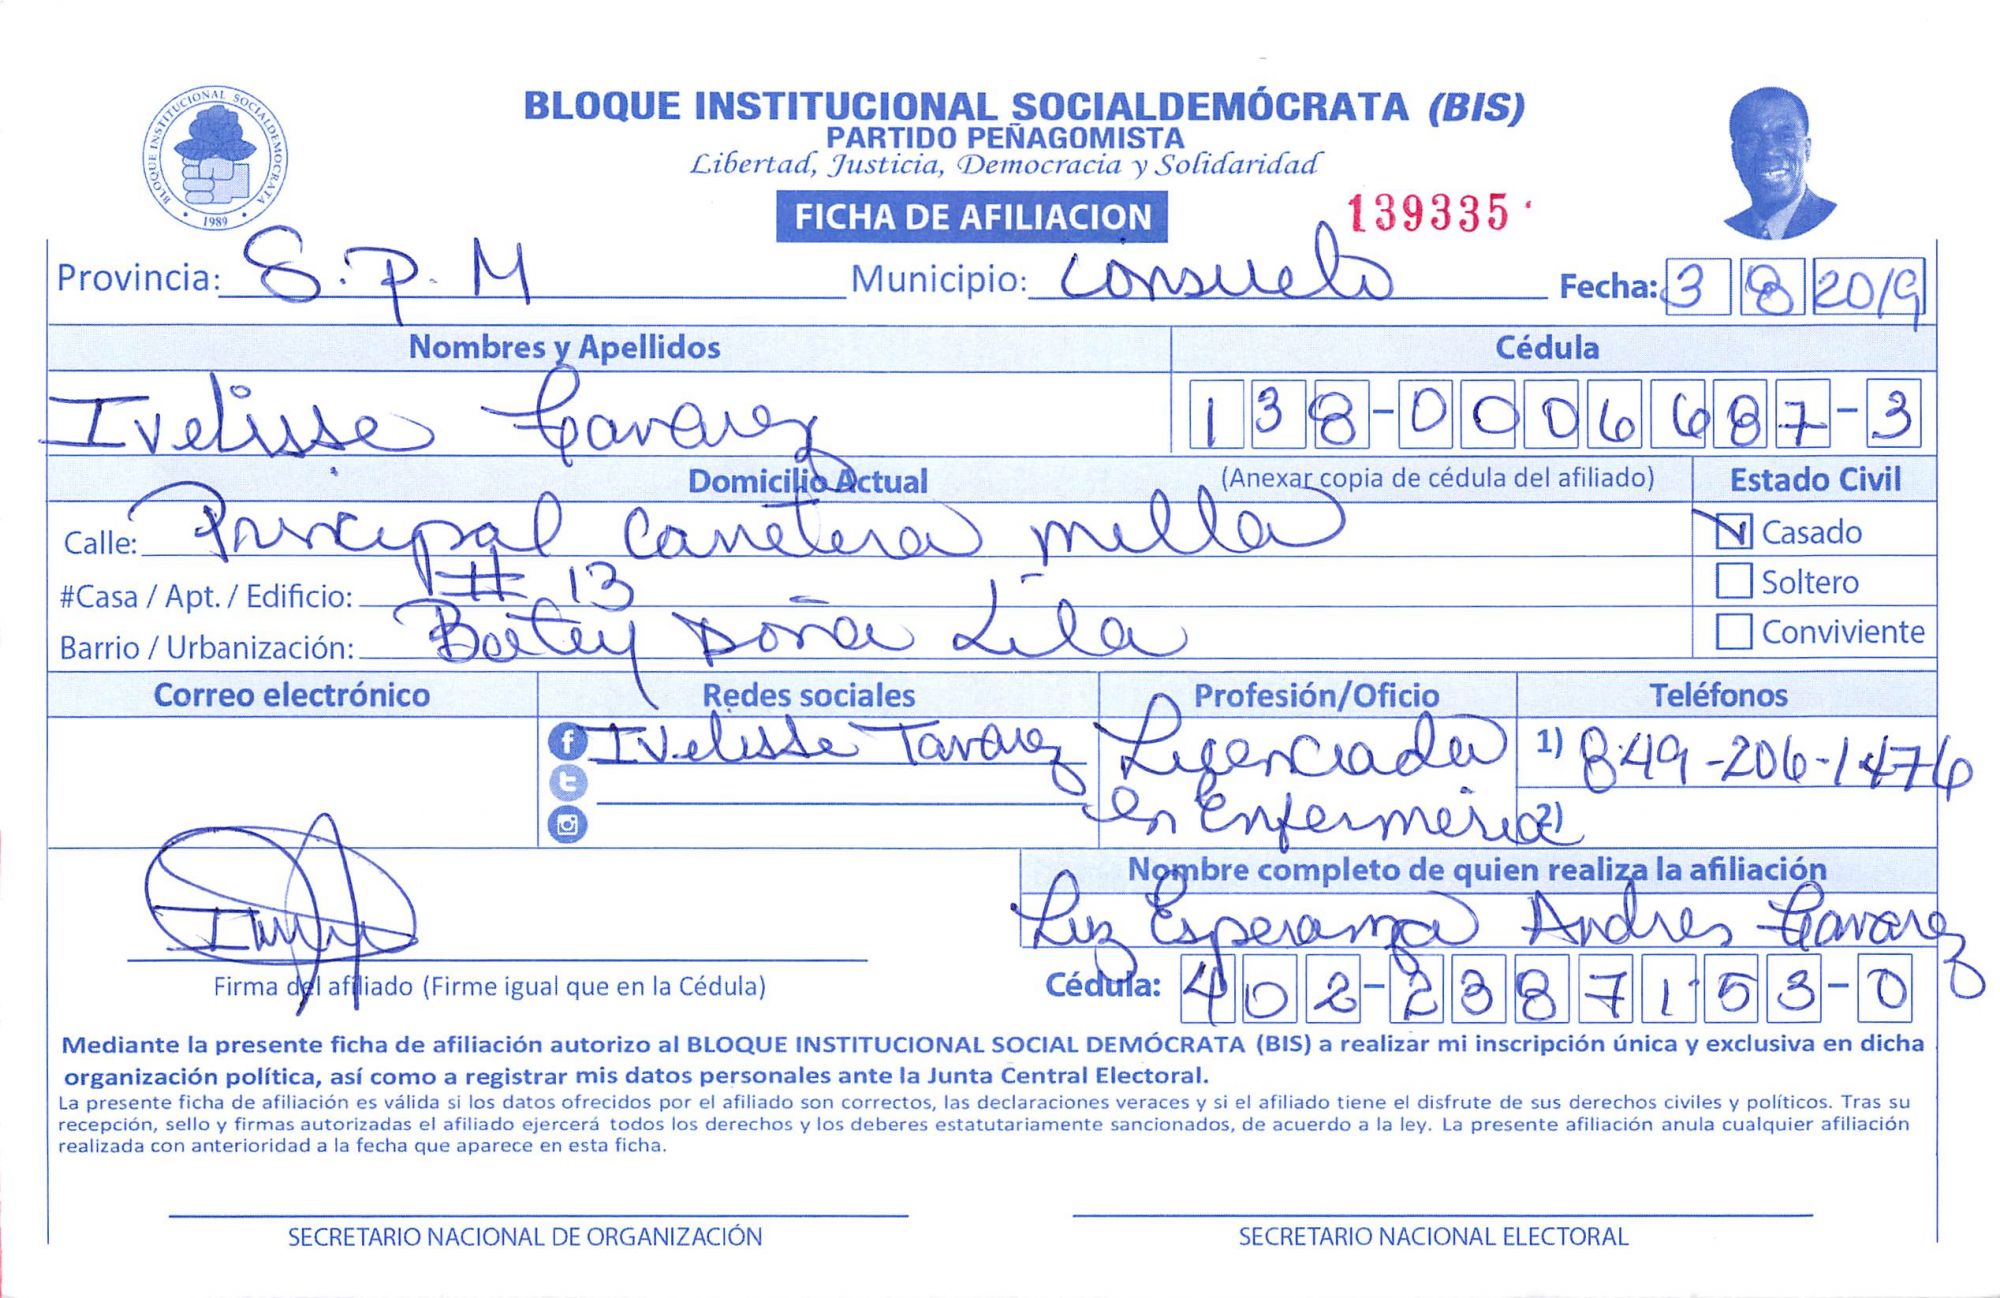 BLOQUE INSTITUCIONAL SOCIALDEMÓCRATA (BIS)
PARTIDO PEÑAGOMISTA
Libertad, Justicia, Democracia y Solidaridad
BLOQUE INSTITUCIONAL SOCIALDEMOCRATA
1989
FICHA DE AFILIACION 139335
Provincia: S.P.M Municipio: Consuelo Fecha: 3 8 2019
Nombres y Apellidos Cédula
Ivelisse Tavarez 138-0006687-3
Domicilio Actual (Anexar copia de cédula del afiliado) Estado Civil
Calle: Principal Carretera mella Casado
#Casa / Apt. / Edificio: # 13 Soltero
Barrio / Urbanización: Batey Doña Lila Conviviente
Correo electrónico Redes sociales Profesión/Oficio Teléfonos
Ivelisse Tavarez Licenciada 1) 849-206-1476
en Enfermeria 2)
Nombre completo de quien realiza la afiliación
Luz Esperanza Andres Tavarez
Firma del afiliado (Firme igual que en la Cédula) Cédula: 402-2387153-0
Mediante la presente ficha de afiliación autorizo al BLOQUE INSTITUCIONAL SOCIAL DEMÓCRATA (BIS) a realizar mi inscripción única y exclusiva en dicha
organización política, así como a registrar mis datos personales ante la Junta Central Electoral.
La presente ficha de afiliación es válida si los datos ofrecidos por el afiliado son correctos, las declaraciones veraces y si el afiliado tiene el disfrute de sus derechos civiles y políticos. Tras su
recepción, sello y firmas autorizadas el afiliado ejercerá todos los derechos y los deberes estatutariamente sancionados, de acuerdo a la ley. La presente afiliación anula cualquier afiliación
realizada con anterioridad a la fecha que aparece en esta ficha.
SECRETARIO NACIONAL DE ORGANIZACIÓN SECRETARIO NACIONAL ELECTORAL